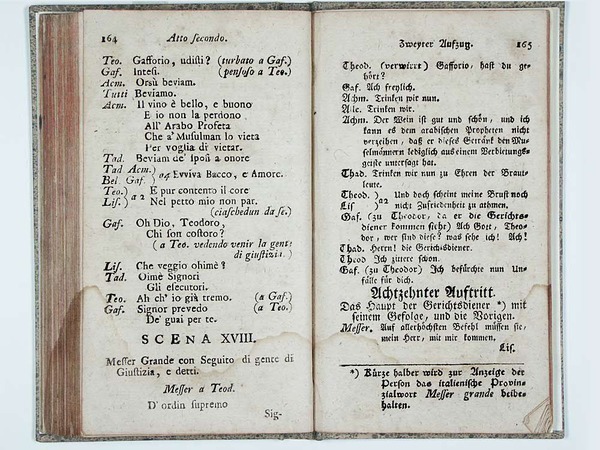 164 Atto secondo.
Teo. Gafforio, udisti? (turbato a Gaf.)
Gaf. Intesi. (pensoso a Teo.)
Acm. Orsù beviam.
Tutti Beviamo.
Acm. Il vino è bello, e buono
E io non la perdono
All' Arabo Profeta
Che a' Musulman lo vieta
Per voglia di vietar.
Tad. Beviam de' sposi a onore
Tad Acm.)
Bel Gaf. ) a4 Evviva Bacco, e Amore.
Teo.) E pur contento il core
Lis.) a 2 Nel petto mio non par.
(ciaschedun da se.)
Gaf. Oh Dio, Teodoro,
Chi son costoro?
(a Teo. vedendo venir la gente
di giustizia.)
Lis. Che veggio ohimè?
Tad. Oimè Signori
Gli esecutori.
Teo. Ah ch' io già tremo. (a Gaf.)
Gaf. Signor prevedo (a Teo.)
De' guai per te.
SCENA XVIII.
Messer Grande con Seguito di gente di
Giustizia, e detti.
Messer a Teod.
D' ordin supremo
Sig-
Zweyter Aufzug. 165
Theod. (verwirrt) Gafforio, hast du ge-
hört?
Gaf. Ach freylich.
Achm. Trinken wir nun.
Alle. Trinken wir.
Achm. Der Wein ist gut und schön, und ich
kann es dem arabischen Propheten nicht
verzeihen, daß er dieses Getränk den Mu-
selmännern lediglich aus einem Verbietungs-
geiste untersagt hat.
Thad. Trinken wir nun zu Ehren der Braut-
leute.
Theod. ) Und doch scheint meine Brust noch
Lis ) a2 nicht Zufriedenheit zu athmen.
Gaf. (zu Theodor, da er die Gerichts-
diener kommen sieht) Ach Gott, Theo-
dor, wer sind diese? was sehe ich! Ach!
Thad. Herrn! die Gerichtsdiener.
Theod Ich zittere schon.
Gaf. (zu Theodor) Ich befürchte nun Un-
fälle für dich.
Achtzehnter Auftritt.
Das Haupt der Gerichtsdiener *) mit
seinem Gefolge, und die Vorigen.
Messer. Auf allerhöchsten Befehl müssen sie,
mein Herr, mit mir kommen.
Lis.
*) Kürze halber wird zur Anzeige der
Person das italienische Provin-
zialwort Messer grande beibe-
halten.